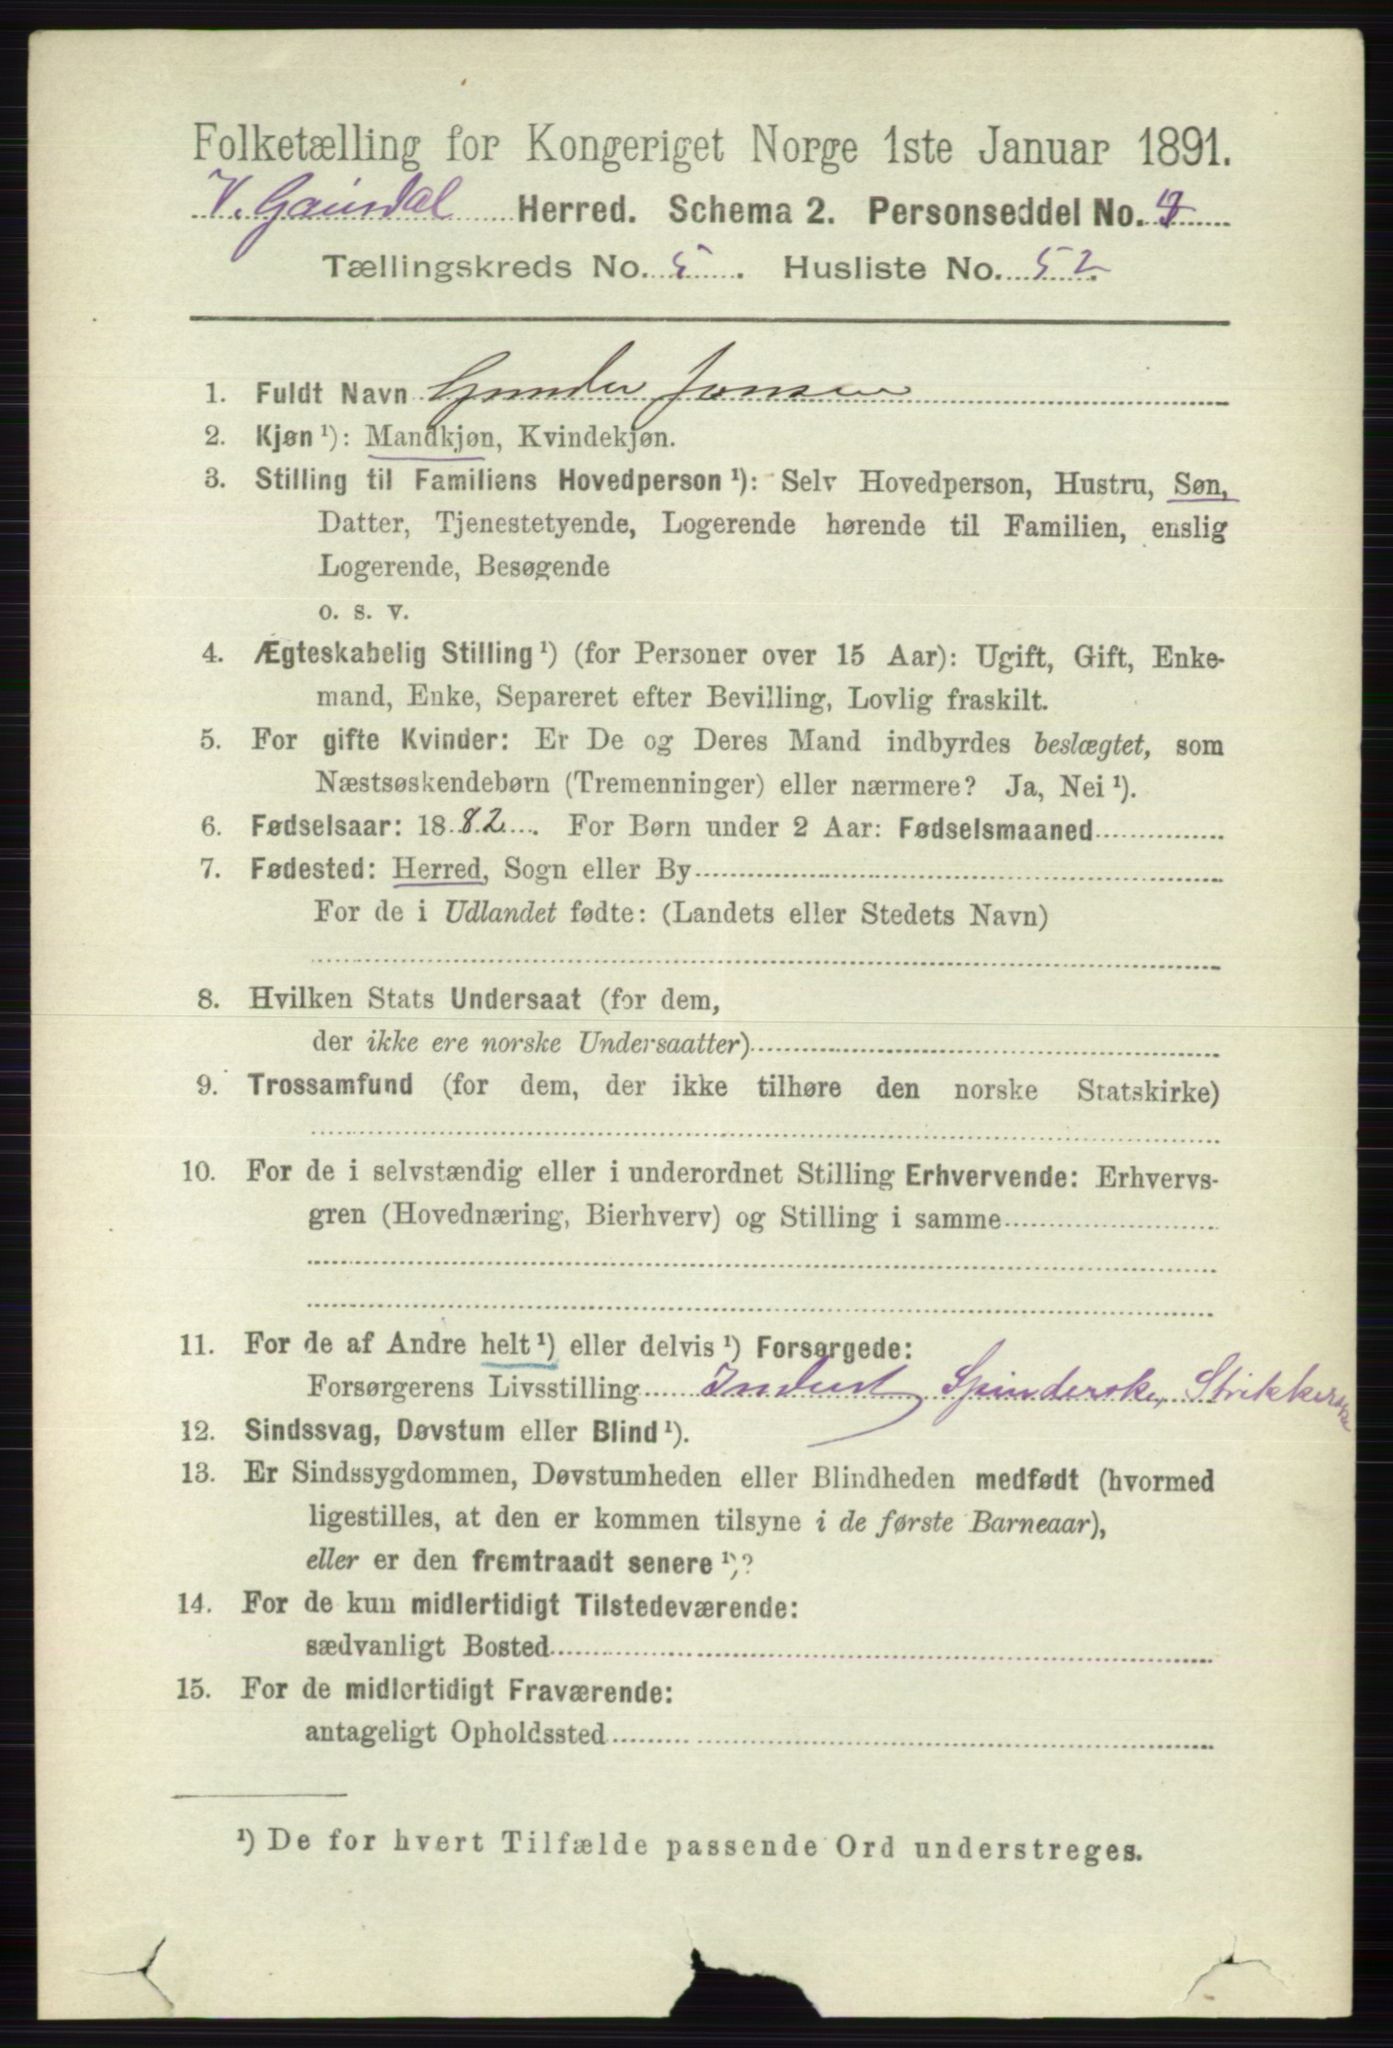 Folketælling for Kongeriget Norge 1ste Januar 1891.
V. Gausdal Herred. Schema 2. Personseddel No.
Tællingskreds No. 5. Husliste No. 52.
1. Fuldt Navn Gunder Jonsen
2. Kjøn ¹): Mandkjøn, Kvindekjøn.
3. Stilling til Familiens Hovedperson ¹): Selv Hovedperson, Hustru, Søn,
Datter, Tjenestetyende, Logerende hørende til Familien, enslig
Logerende, Besøgende
o. s. v.
4. Ægteskabelig Stilling ¹) (for Personer over 15 Aar): Ugift, Gift, Enke-
mand, Enke, Separeret efter Bevilling, Lovlig fraskilt.
5. For gifte Kvinder: Er De og Deres Mand indbyrdes beslægtet, som
Næstsøskendebørn (Tremenninger) eller nærmere? Ja, Nei ¹).
6. Fødselsaar: 1882. For Børn under 2 Aar: Fødselsmaaned
7. Fødested: Herred, Sogn eller By
For de i Udlandet fødte: (Landets eller Stedets Navn)
8. Hvilken Stats Undersaat (for dem,
der ikke ere norske Undersaatter)
9. Trossamfund (for dem, der ikke tilhøre den norske Statskirke)
10. For de i selvstændig eller i underordnet Stilling Erhvervende: Erhvervs-
gren (Hovednæring, Bierhverv) og Stilling i samme
11. For de af Andre helt ¹) eller delvis ¹) Forsørgede:
Forsørgerens Livsstilling Indust Spinderske, Strikkerske
12. Sindssvag, Døvstum eller Blind ¹).
13. Er Sindssygdommen, Døvstumheden eller Blindheden medfødt (hvormed
ligestilles, at den er kommen tilsyne i de første Barneaar),
eller er den fremtraadt senere ¹)?
14. For de kun midlertidigt Tilstedeværende:
sædvanligt Bosted
15. For de midlertidigt Fraværende:
antageligt Opholdssted
¹) De for hvert Tilfælde passende Ord understreges.